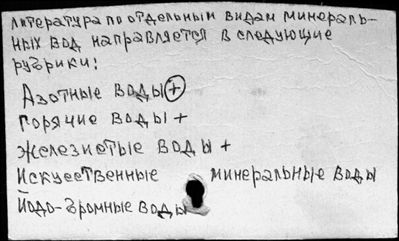 литература по отдельным видам минераль-
ных вод направляется в следующие
рубрики:
Азотные воды +
Горячие воды +
Железистые воды +
Искуественные минеральные воды
Йодо-бромные воды